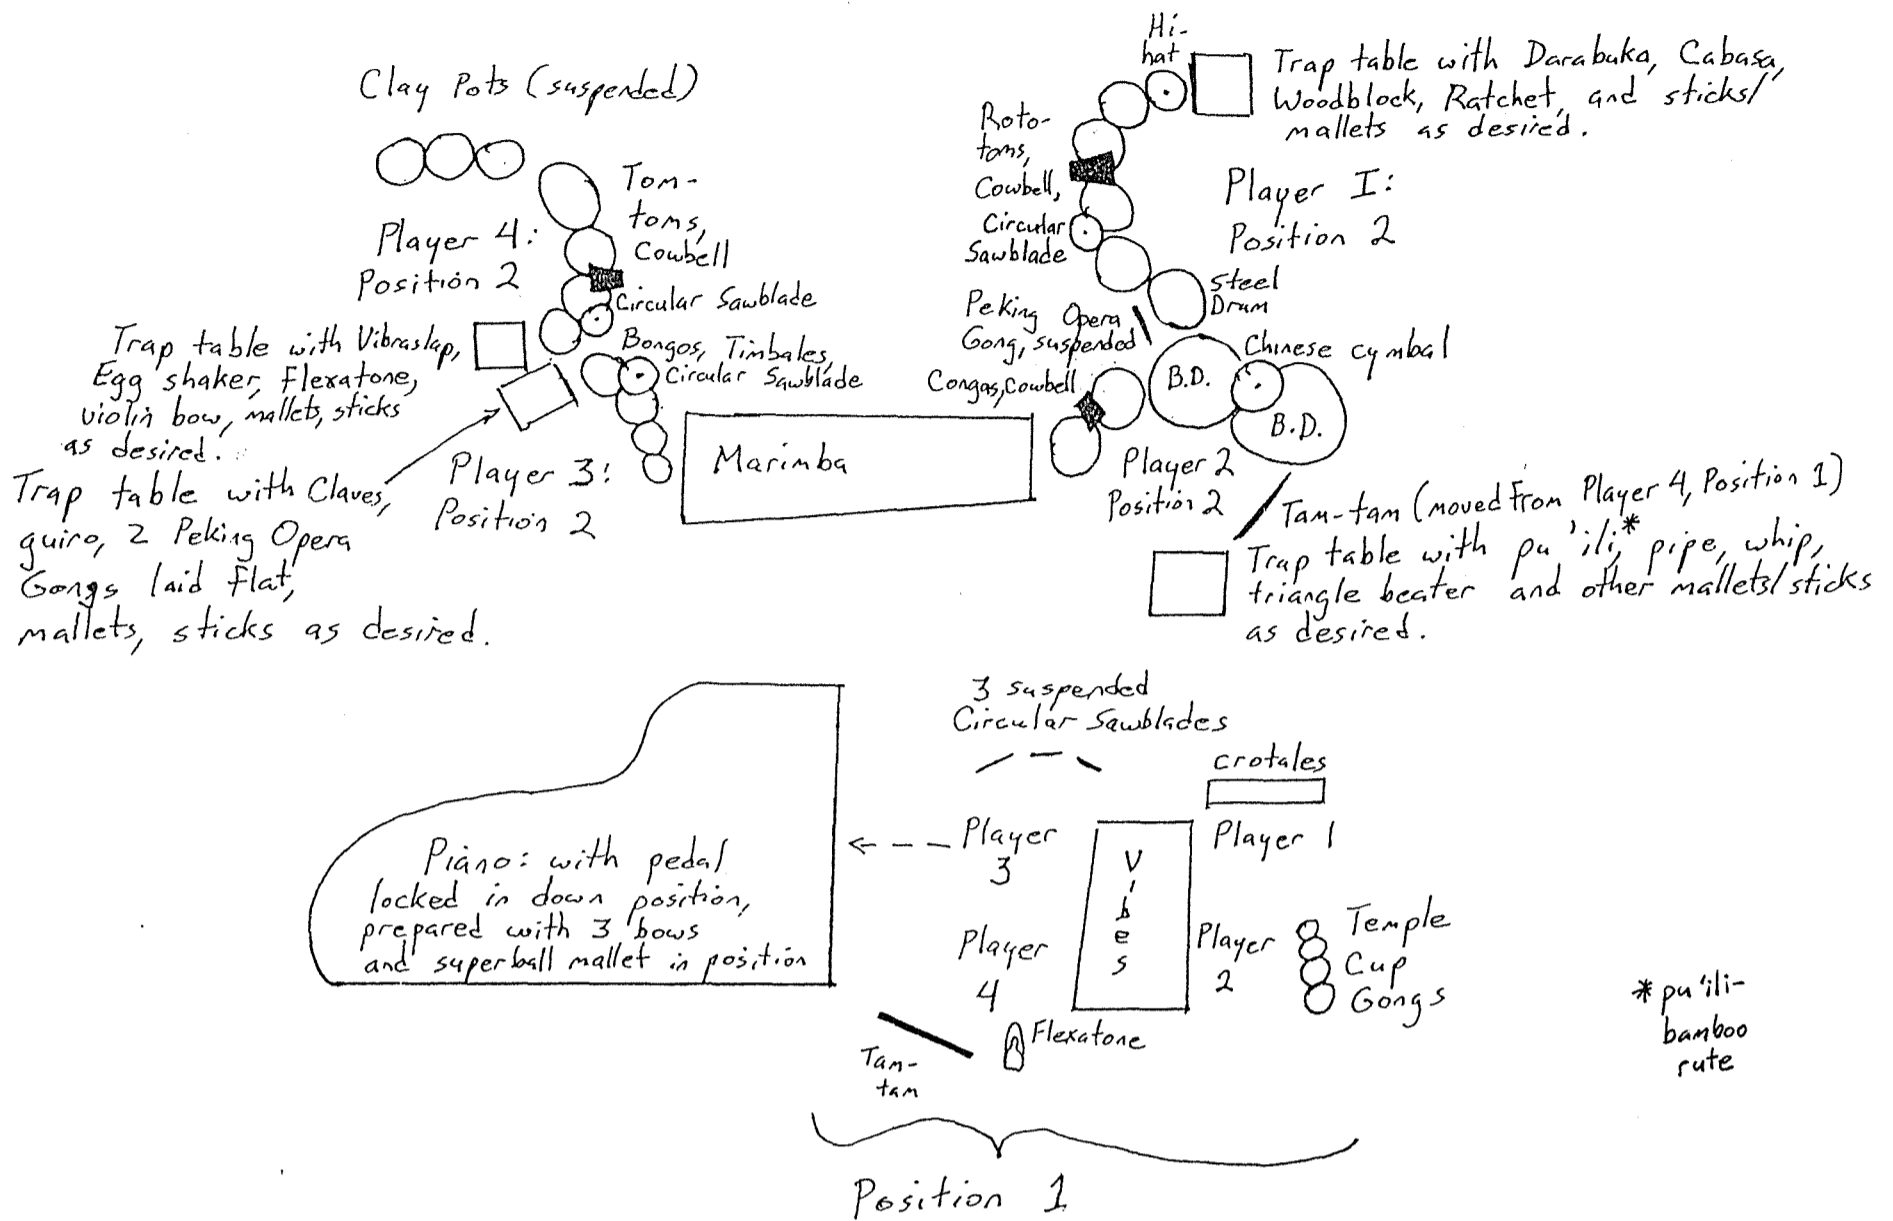 Clay Pots (suspended)
Tom-
toms,
Cowbell
Player 4:
Position 2
Circular Sawblade
Trap table with Vibraslap,
Egg shaker, Flexatone,
violin bow, mallets, sticks
as desired.
Bongos, Timbales,
Circular Sawblade
Trap table with Claves,
guiro, 2 Peking Opera
Gongs laid flat,
mallets, sticks as desired.
Player 3:
Position 2
Marimba
Hi-
hat
Trap table with Darabuka, Cabasa,
Woodblock, Ratchet, and sticks/
mallets as desired.
Roto-
toms,
Cowbell,
Circular
Sawblade
Player I:
Position 2
Steel
Drum
Peking Opera
Gong, suspended
Chinese cymbal
B.D.
B.D.
Congas, Cowbell
Player 2
Position 2
Tam-tam (moved from Player 4, Position 1)
Trap table with pu'ili,* pipe, whip,
triangle beater and other mallets/sticks
as desired.
3 suspended
Circular Sawblades
crotales
Player 1
Player
3
Vibes
Piano: with pedal
locked in down position,
prepared with 3 bows
and superball mallet in position
Player
4
Player
2
Temple
Cup
Gongs
Flexatone
Tam-
tam
* pu'ili-
bamboo
rute
Position 1